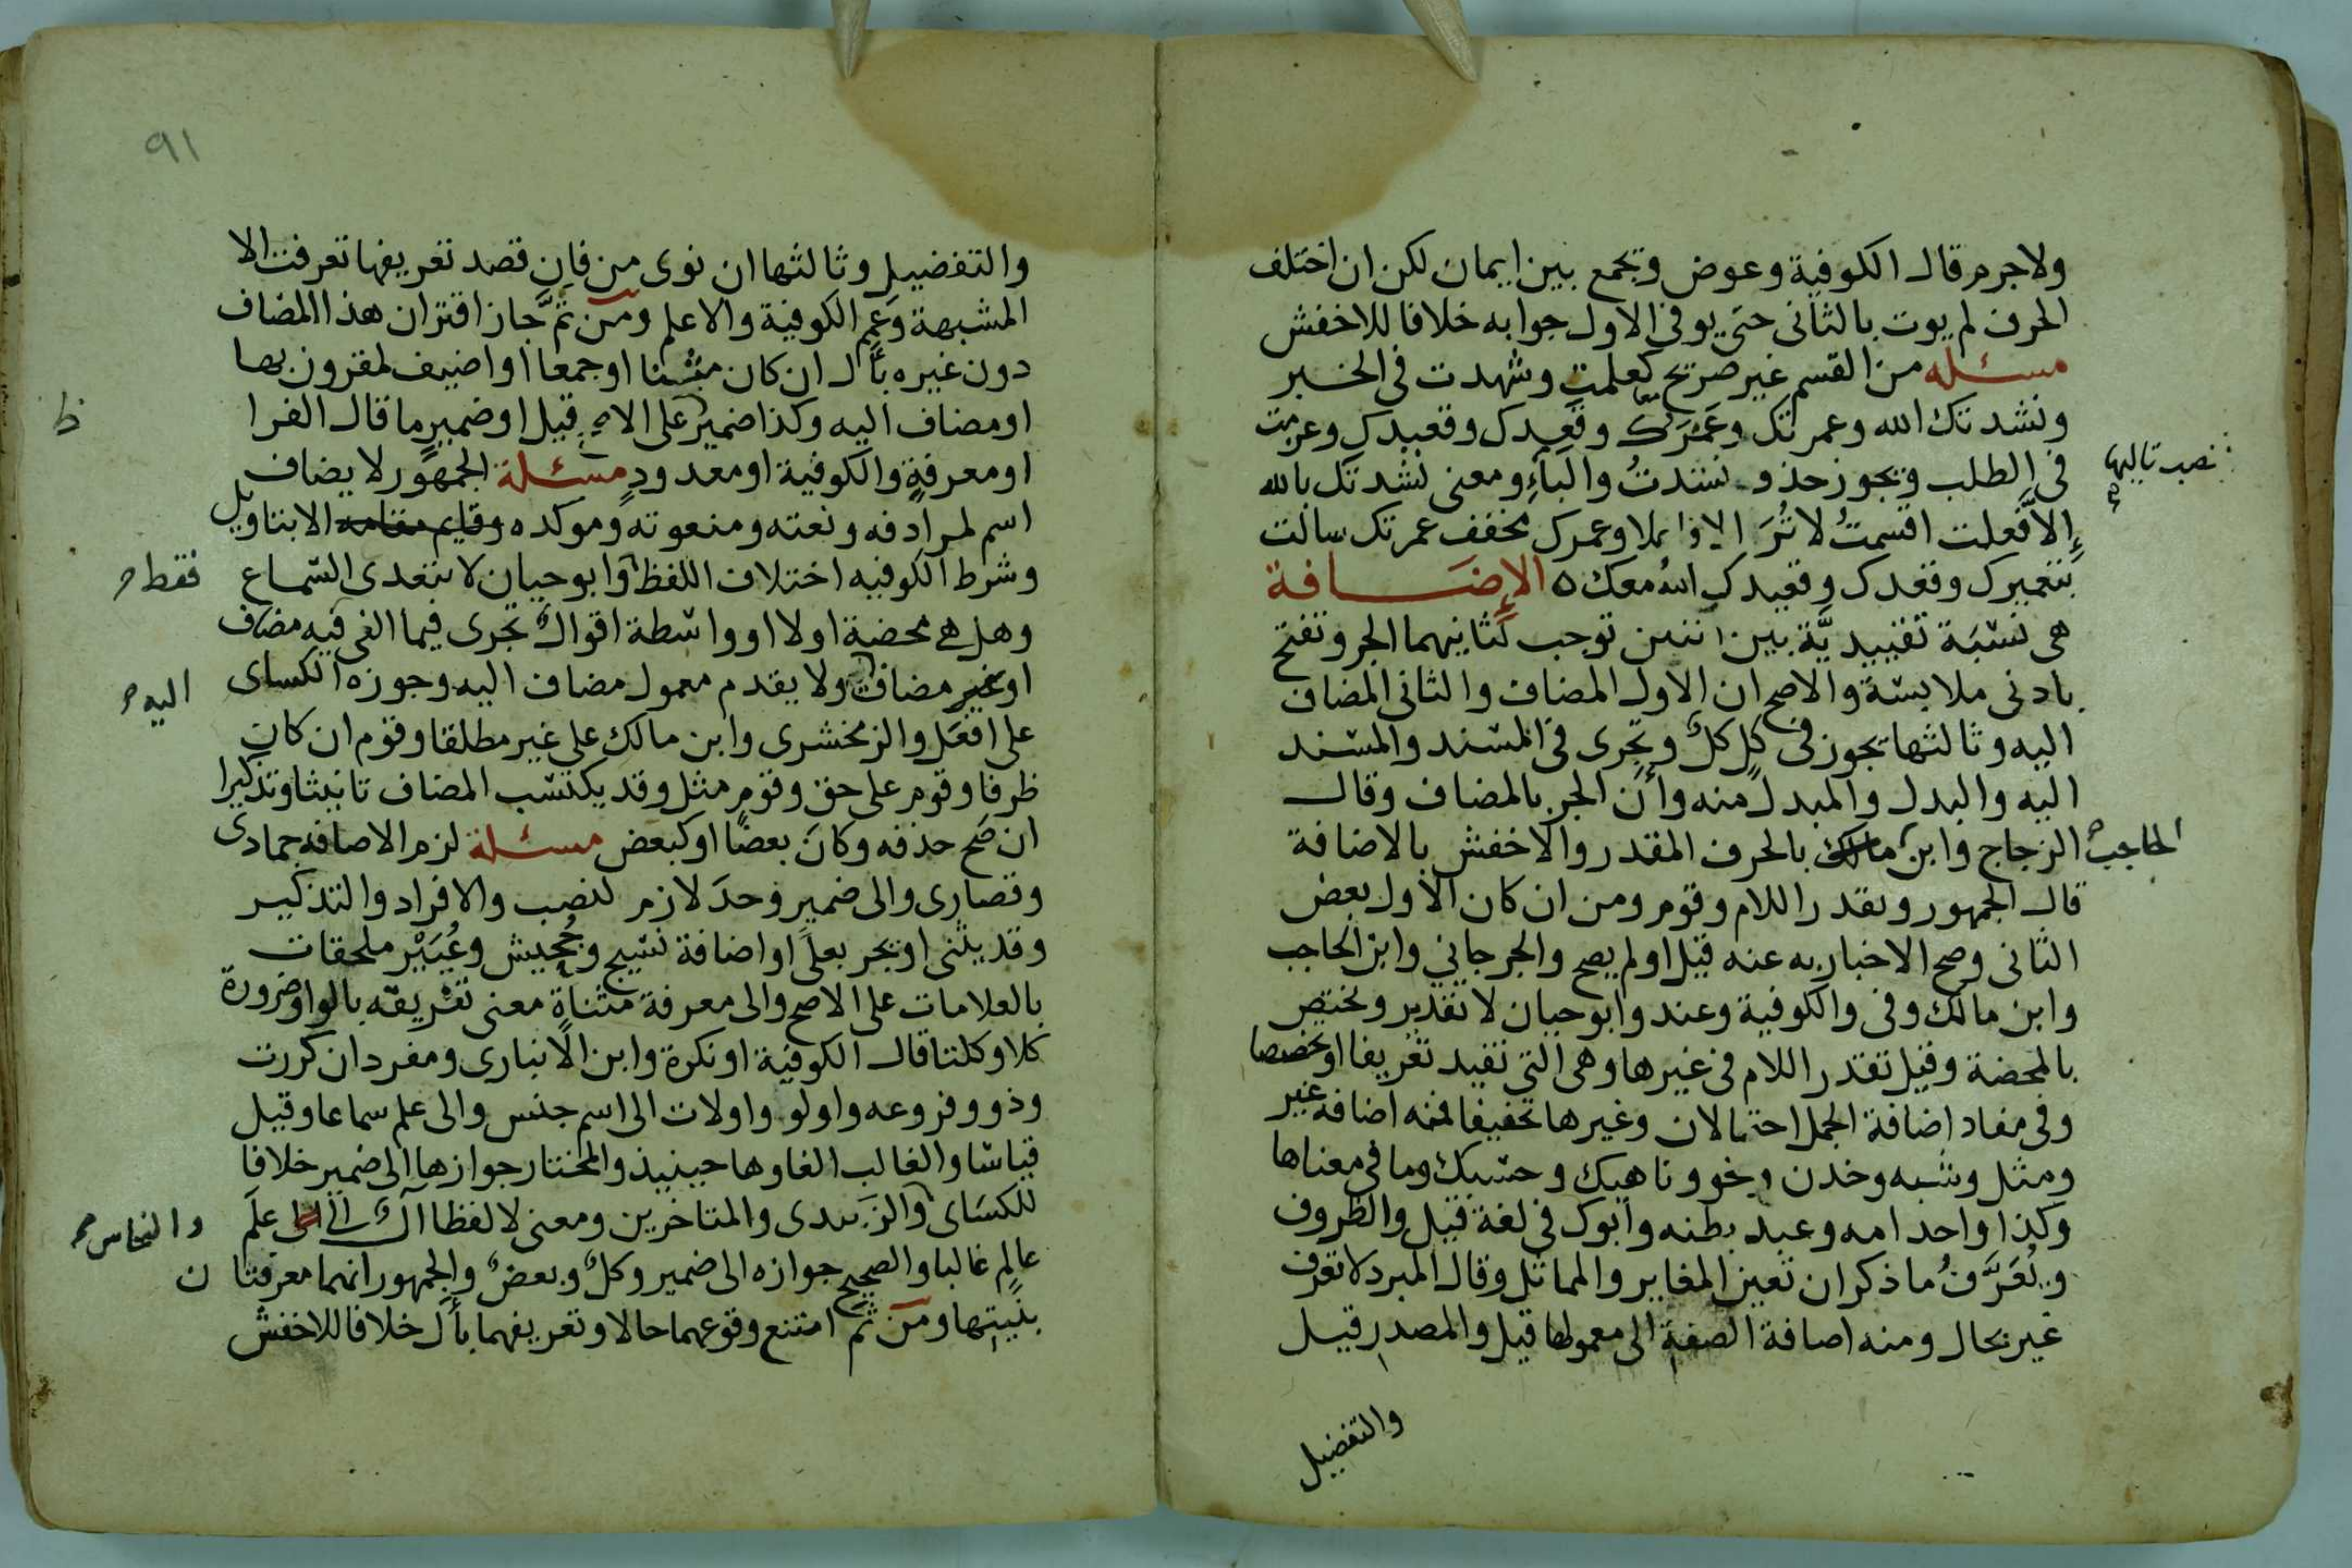 ولا جرم قال الكوفية وعوض وتجمع بين ايمان لكن ان اختلف
الحرف لم يوت بالثانى حتى يوفى الاول جوابه خلافا للاخفش
مسئله من القسم غير صريح كعلمت وشهدت فى الخبر
ونشدتك الله وعمرتك وعمرك وقعدك وقعيدك وعزمت
فى الطلب ويجوز حذف نشدت والباء ومعنى نشدتك بالله
نصب تاليها
إلا فعلت اقسمت لا تر الا ذا بلا وعمرك مخفف عمرتك سالت
بتعميرك وقعدك وقعيدك الله معك ه الإضافة
هى نسبة تقييدية بين اثنين توجب لثانيهما الجر وتفتح
بادنى ملابسة والاصح ان الاول المضاف والثانى المضاف
اليه وثالثها يجوز فى كل كل وتجرى فى المسند والمسند
اليه والبدل والمبدل منه وأن الجر بالمضاف وقال
الزجاج وابن مالك بالحرف المقدر والاخفش بالاضافة
الحاجب
قال الجمهور وتقدر اللام وقوم ومن ان كان الاول بعض
الثانى وصح الاخبار به عنه قيل او لم يصح والجرجاني وابن الحاجب
وابن مالك وفى والكوفية وعند وابو حيان لا تقدير وتختص
بالمحضة وقيل تقدر اللام فى غيرها وهى التى تفيد تعريفا او تخصيصا
وفى مفاد إضافة الجمل احتمالان وغيرها تخفيفا فمنه اضافة غير
ومثل وشبه وخدن ونحو وناهيك وحسبك وما فى معناها
وكذا واحد امه وعبد بطنه وأبوك فى لغة قيل والظروف
ويُعَرَّفُ ما ذكر ان تعين المغاير والمماثل وقال المبرد لا تعرف
غير بحال ومنه اضافة الصفة الى معمولها قيل والمصدر قيل
والتفضيل
٩١
والتفضيل وثالثها ان نوى من فان قصد تعريفها تعرفت الا
المشبهة وعم الكوفية والاعلم ومن ثم جاز اقتران هذا المضاف
دون غيره بأل ان كان مثنا او جمعا او اضيف لمقرون بها
او مضاف اليه وكذا ضمير على الاصح قيل او ضمير ما قال الفرا
ظ
او معرفة والكوفية او معدود مسئلة الجمهور لا يضاف
اسم لمرادفه ونعته ومنعوته وموكده وقايم مقامه الا بتاويل
وشرط الكوفيه اختلاف اللفظ وابو حيان لا يتعدى السماع
فقط
وهل هى محضة او لا او واسطة اقوال تجرى فيما الغى فيه مضاف
او غير مضاف ولا يقدم معمول مضاف اليه وجوزه الكساى
اليه
على افعل والزمخشرى وابن مالك على غير مطلقا وقوم ان كان
ظرفا وقوم على حق وقوم مثل وقد يكتسب المضاف تانيثا وتذكيرا
ان صح حذفه وكان بعضا او كبعض مسئلة لزم الاضافه حمادى
وقصارى والى ضمير وحد لازم لنصب والافراد والتذكير
وقد يثنى او يجر بعلى او اضافة نسيج وجحيش وعيير ملحقات
بالعلامات على الاصح والى معرفة مثناة معنى تفريقه بالواو ضرورة
كلا وكلتا قال الكوفية او نكرة وابن الأنبارى ومفرد ان كررت
وذو وفروعه واولو واولات الى اسم جنس والى علم سماعا وقيل
قياسا والغالب الغاوها حينيذ والمختار جوازها الى ضمير خلافا
للكساى والزبيدى والمتاخرين ومعنى لا لفظا آل الى علم
والنحاس
عالم غالبا والصحيح جوازه الى ضمير وكل وبعض والجمهور انهما معرفتان
بنيتها ومن ثم امتنع وقوعهما حالا وتعريفهما بأل خلافا للاخفش